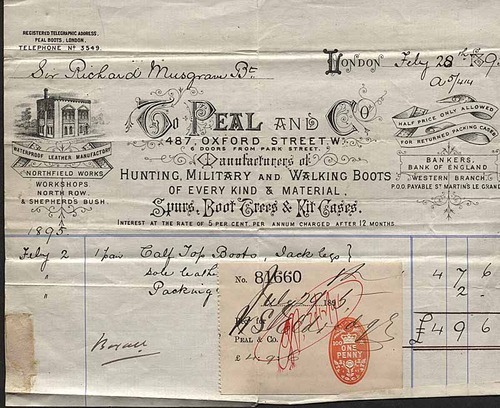 REGISTERED TELEGRAPHIC ADDRESS,
PEAL BOOTS, LONDON.
TELEPHONE Nº 3549.
LONDON Feby 28th 1895
Sir Richard Musgrave Bt.
To PEAL AND Co.
487, OXFORD STREET, W.
6 DOORS FROM PARK STREET.
Manufacturers of
HUNTING, MILITARY AND WALKING BOOTS
OF EVERY KIND & MATERIAL.
Spurs, Boot Trees & Kit Cases.
INTEREST AT THE RATE OF 5 PER CENT. PER ANNUM CHARGED AFTER 12 MONTHS
WATERPROOF LEATHER MANUFACTORY
NORTHFIELD WORKS
WORKSHOPS
NORTH ROW.
& SHEPHERDS BUSH.
HALF PRICE ONLY ALLOWED
FOR RETURNED PACKING CASES
BANKERS,
BANK OF ENGLAND
WESTERN BRANCH
P.O.O. PAYABLE ST MARTINS LE GRAND
1895
Feby 2 1 pair Calf Top Boots, Jack legs
" sole 4 7 6
" Packing 2 -
£ 4 9 6
No. 81660
July 29 1895
PEAL & Co.
£ 4-9-6
ONE
PENNY